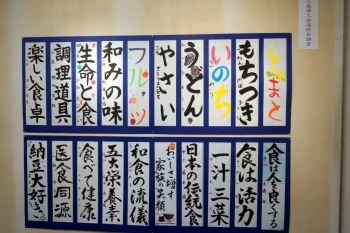 とまと
もちつき
いのち
うどん
やさい
フルーツ
和みの味
生命と食
調理道具
楽しい食卓
食は人を良くする
食は活力
一汁三菜
日本の伝統食
おいしさ増す
家族の笑顔
和食の流儀
五大栄養素
食べて健康
医食同源
納豆大好き